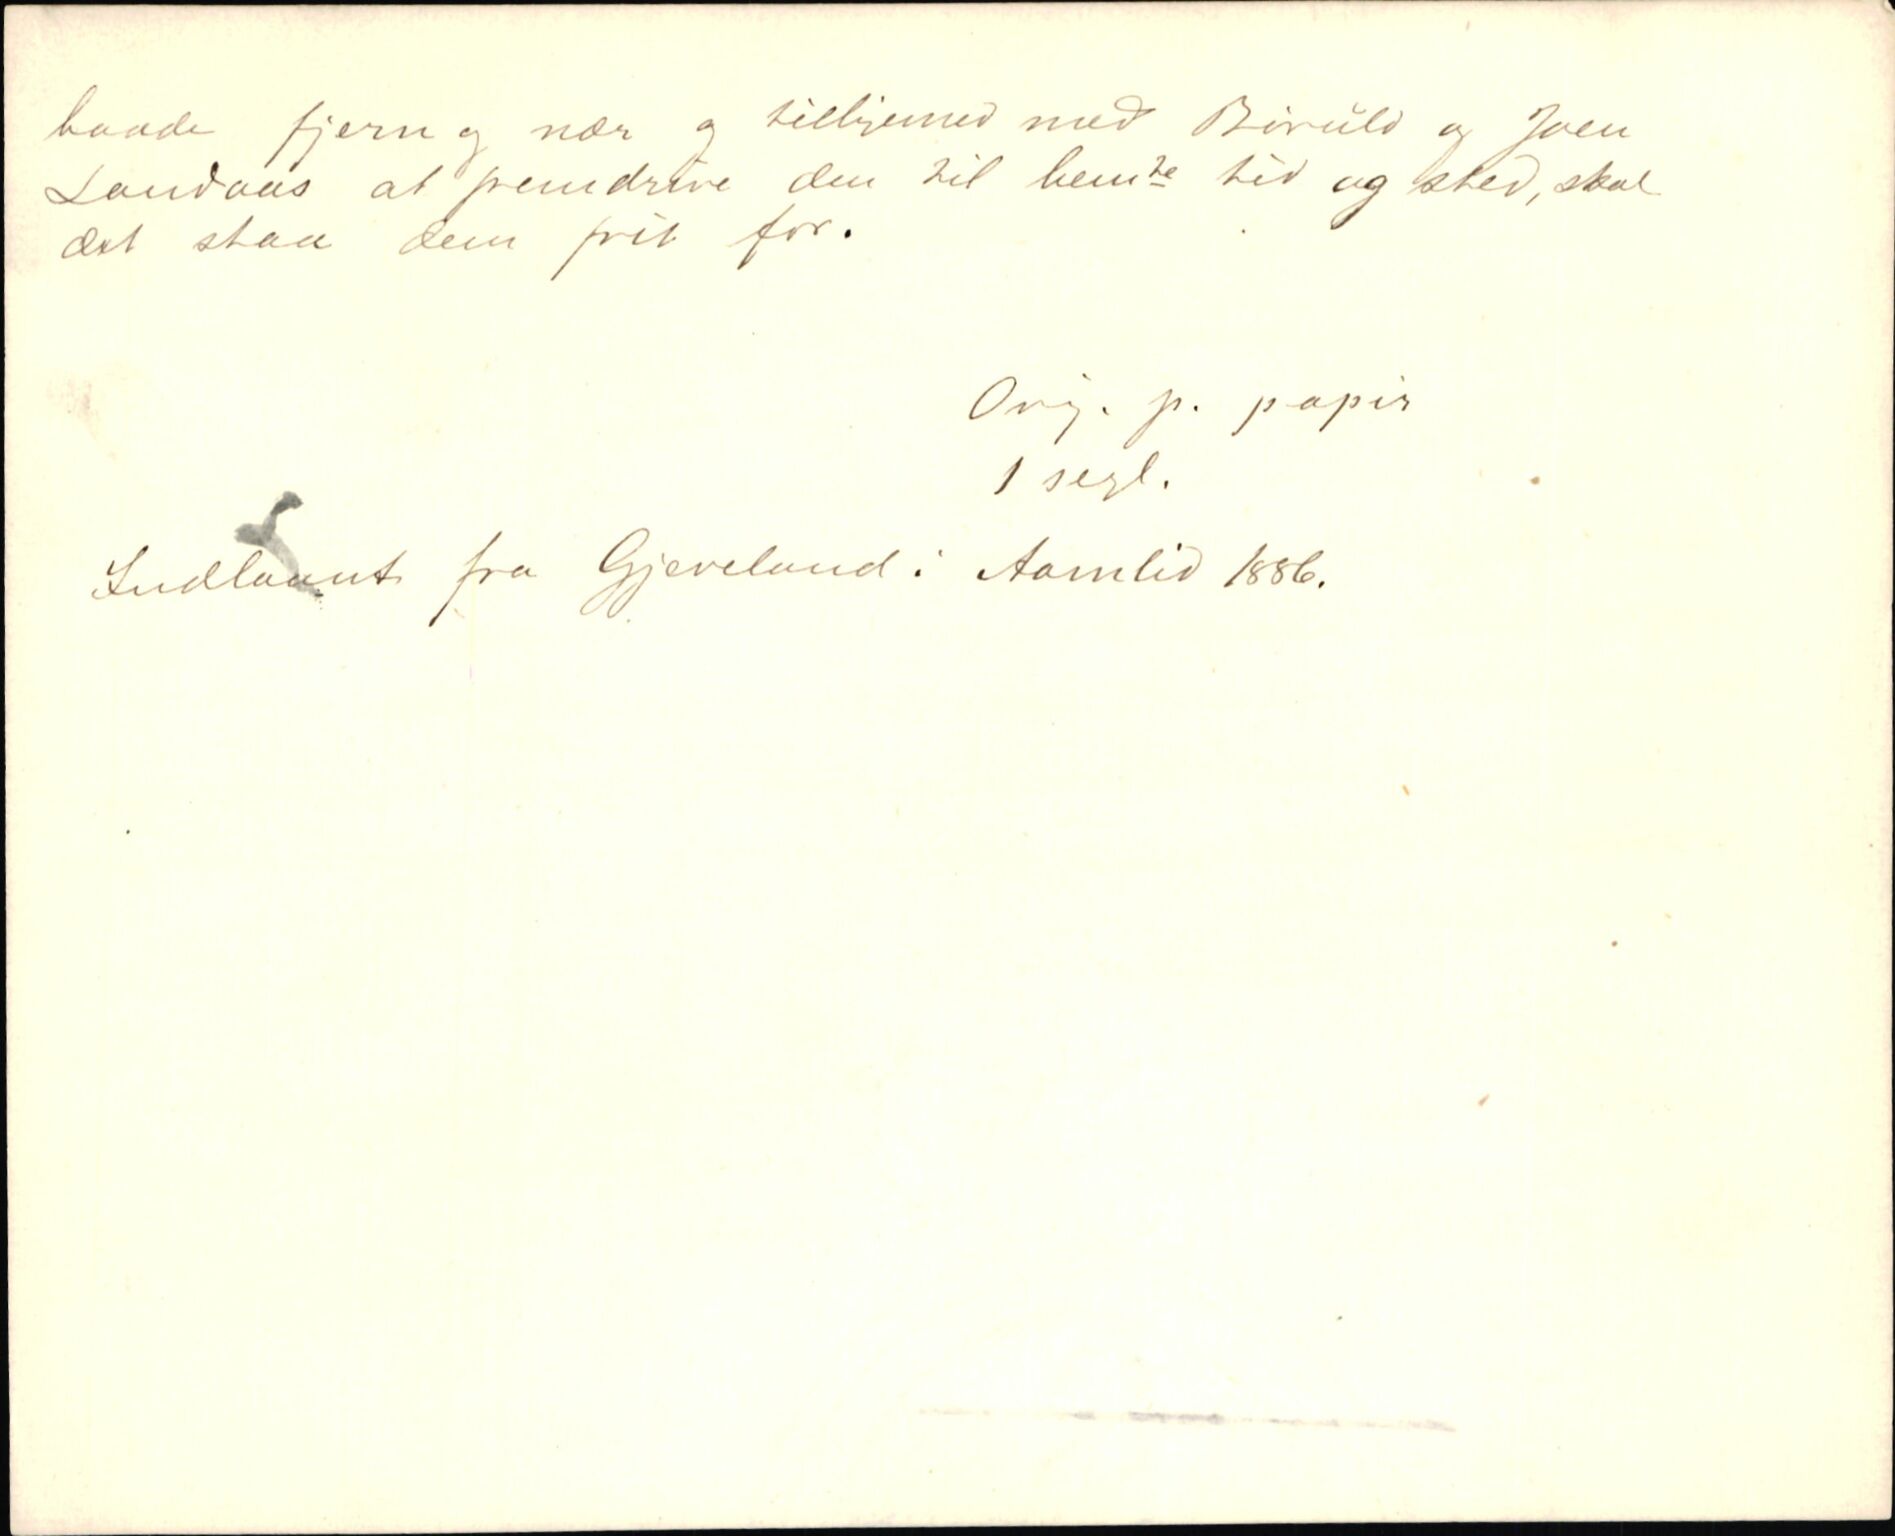 baade fjern og nær og tilligemed med Biruld og Joen
Landaas at fremdrive den til bemte tid og sted, skal
det staa dem frit for.
Orig. p. papir
1 segl.
Indlaant fra Gjeveland i Aamlid 1886.